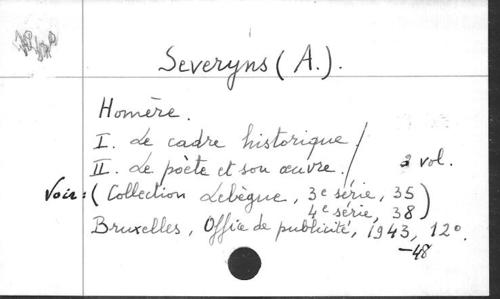 Severyns (A.).
Homère.
I. Le cadre historique /
II. Le poète et son œuvre. / 2 vol.
Voir : (Collection Lebègue, 3e série, 35
4e série, 38)
Bruxelles, Office de publicité, 1943, 12°.
-48